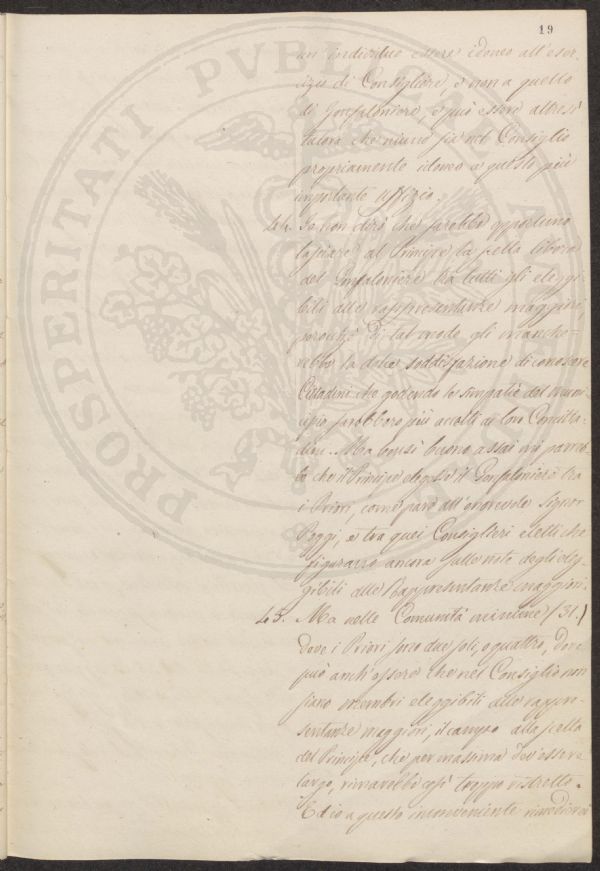 19
un individuo essere idoneo all'eser-
cizio di Consigliere, e non a quello
di Gonfaloniere, e può essere altresì
talora che niuno sia nel Consiglio
propriamente idoneo a questo più
importante Uffizio.
44. Io non dirò che sarebbe opportuno
lasciare al Principe la scelta libera
del Gonfaloniere tra tutti gli eleggi-
bili alle rappresentanze maggiori,
perocchè di tal modo gli manche-
rebbe la dolce soddisfazione di conoscere
Cittadini che godendo le simpatie del Muni-
cipio sarebbero più accetti ai loro Concitta-
dini. Ma bensì buono assai mi parreb-
be che il Principe elegesse il Gonfaloniere tra
i Priori, come pare all'onorevole Signor
Poggi, e tra quei Consiglieri eletti che
figurano ancora sulle note degli eleg-
gibili alle Rappresentanze maggiori.
45. Ma nelle Comunità minime (31.)
dove i Priori sono due soli, o quattro, dove
può anch'essere che nel Consiglio non
siano membri eleggibili alle rappre-
sentanze maggiori, il campo alla scelta
del Principe, che per massima dev'essere
largo, rimarrebbe così troppo ristretto.
Ed io a questo inconveniente rimedierei
PROSPERITATI PVBLICAE